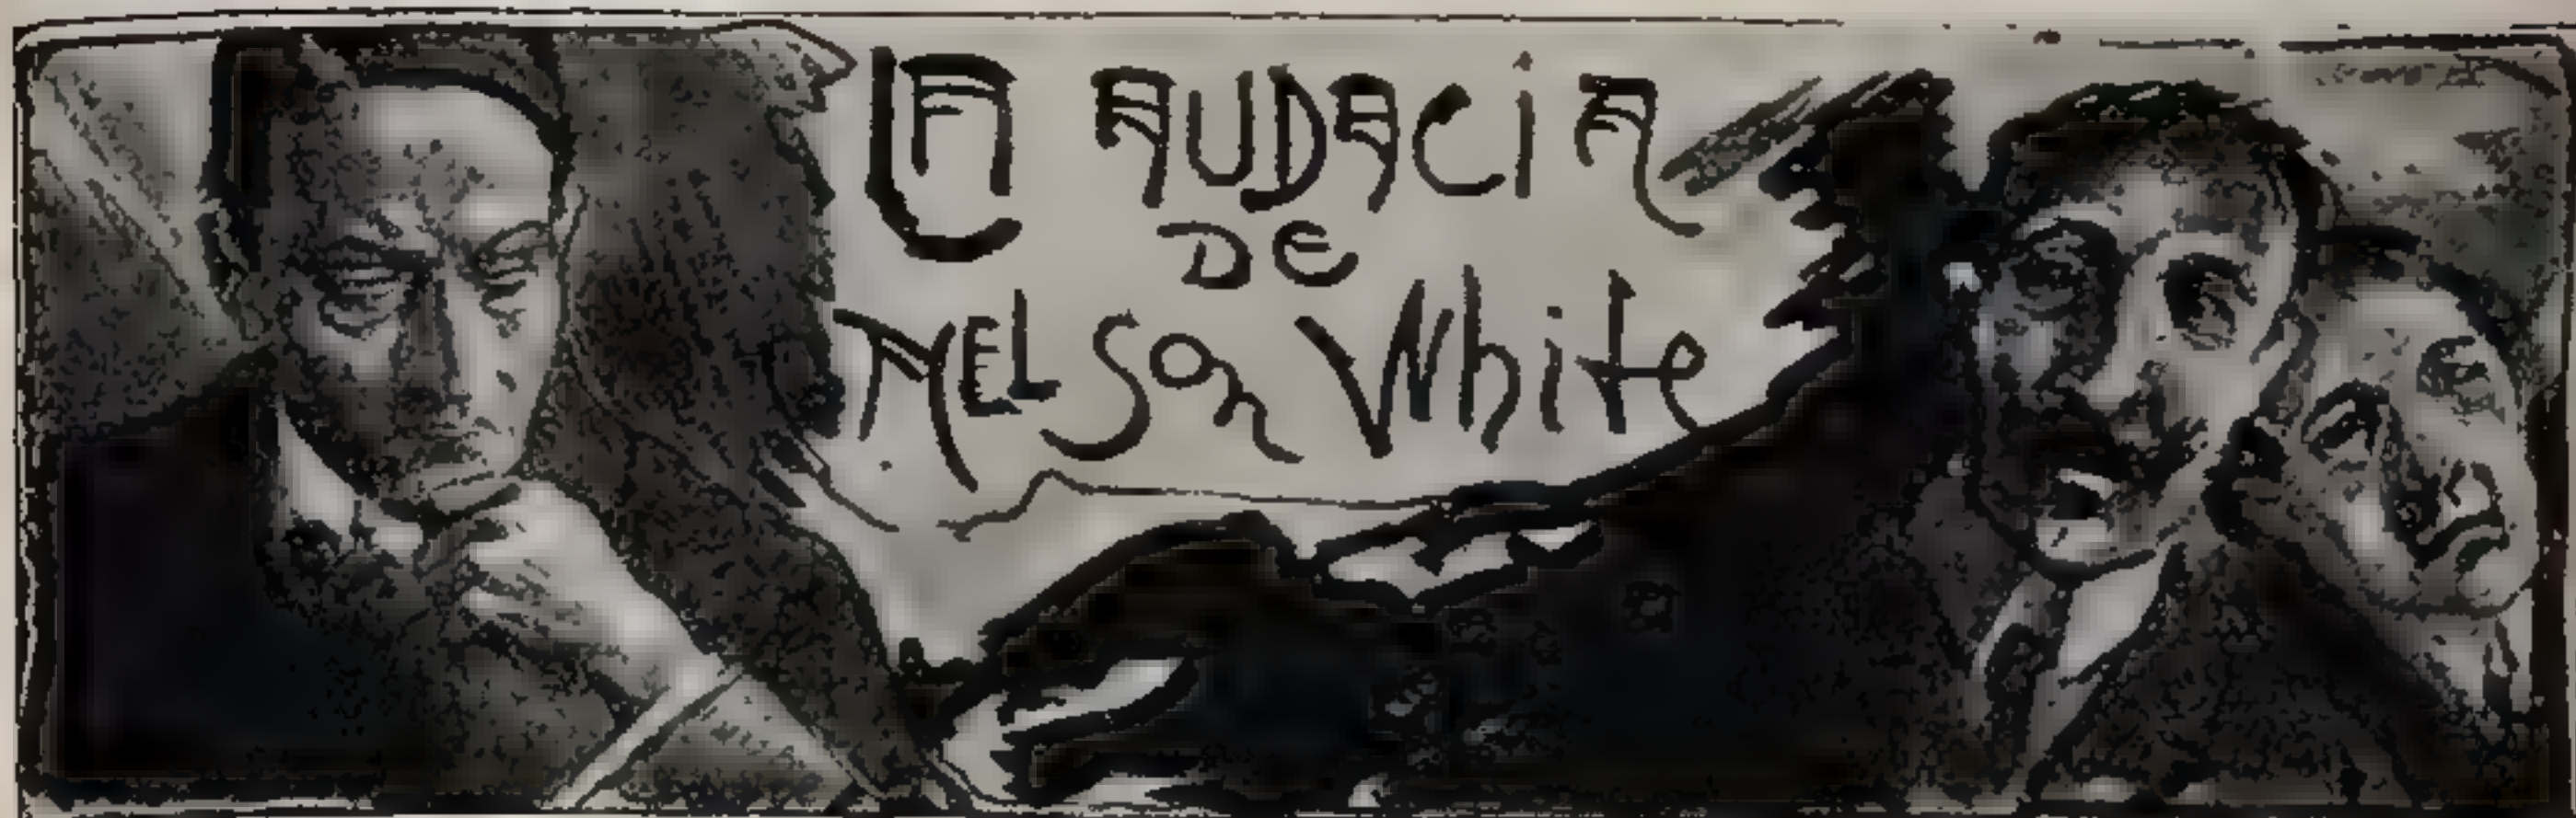 LA AUDACiA
DE
NELSon White